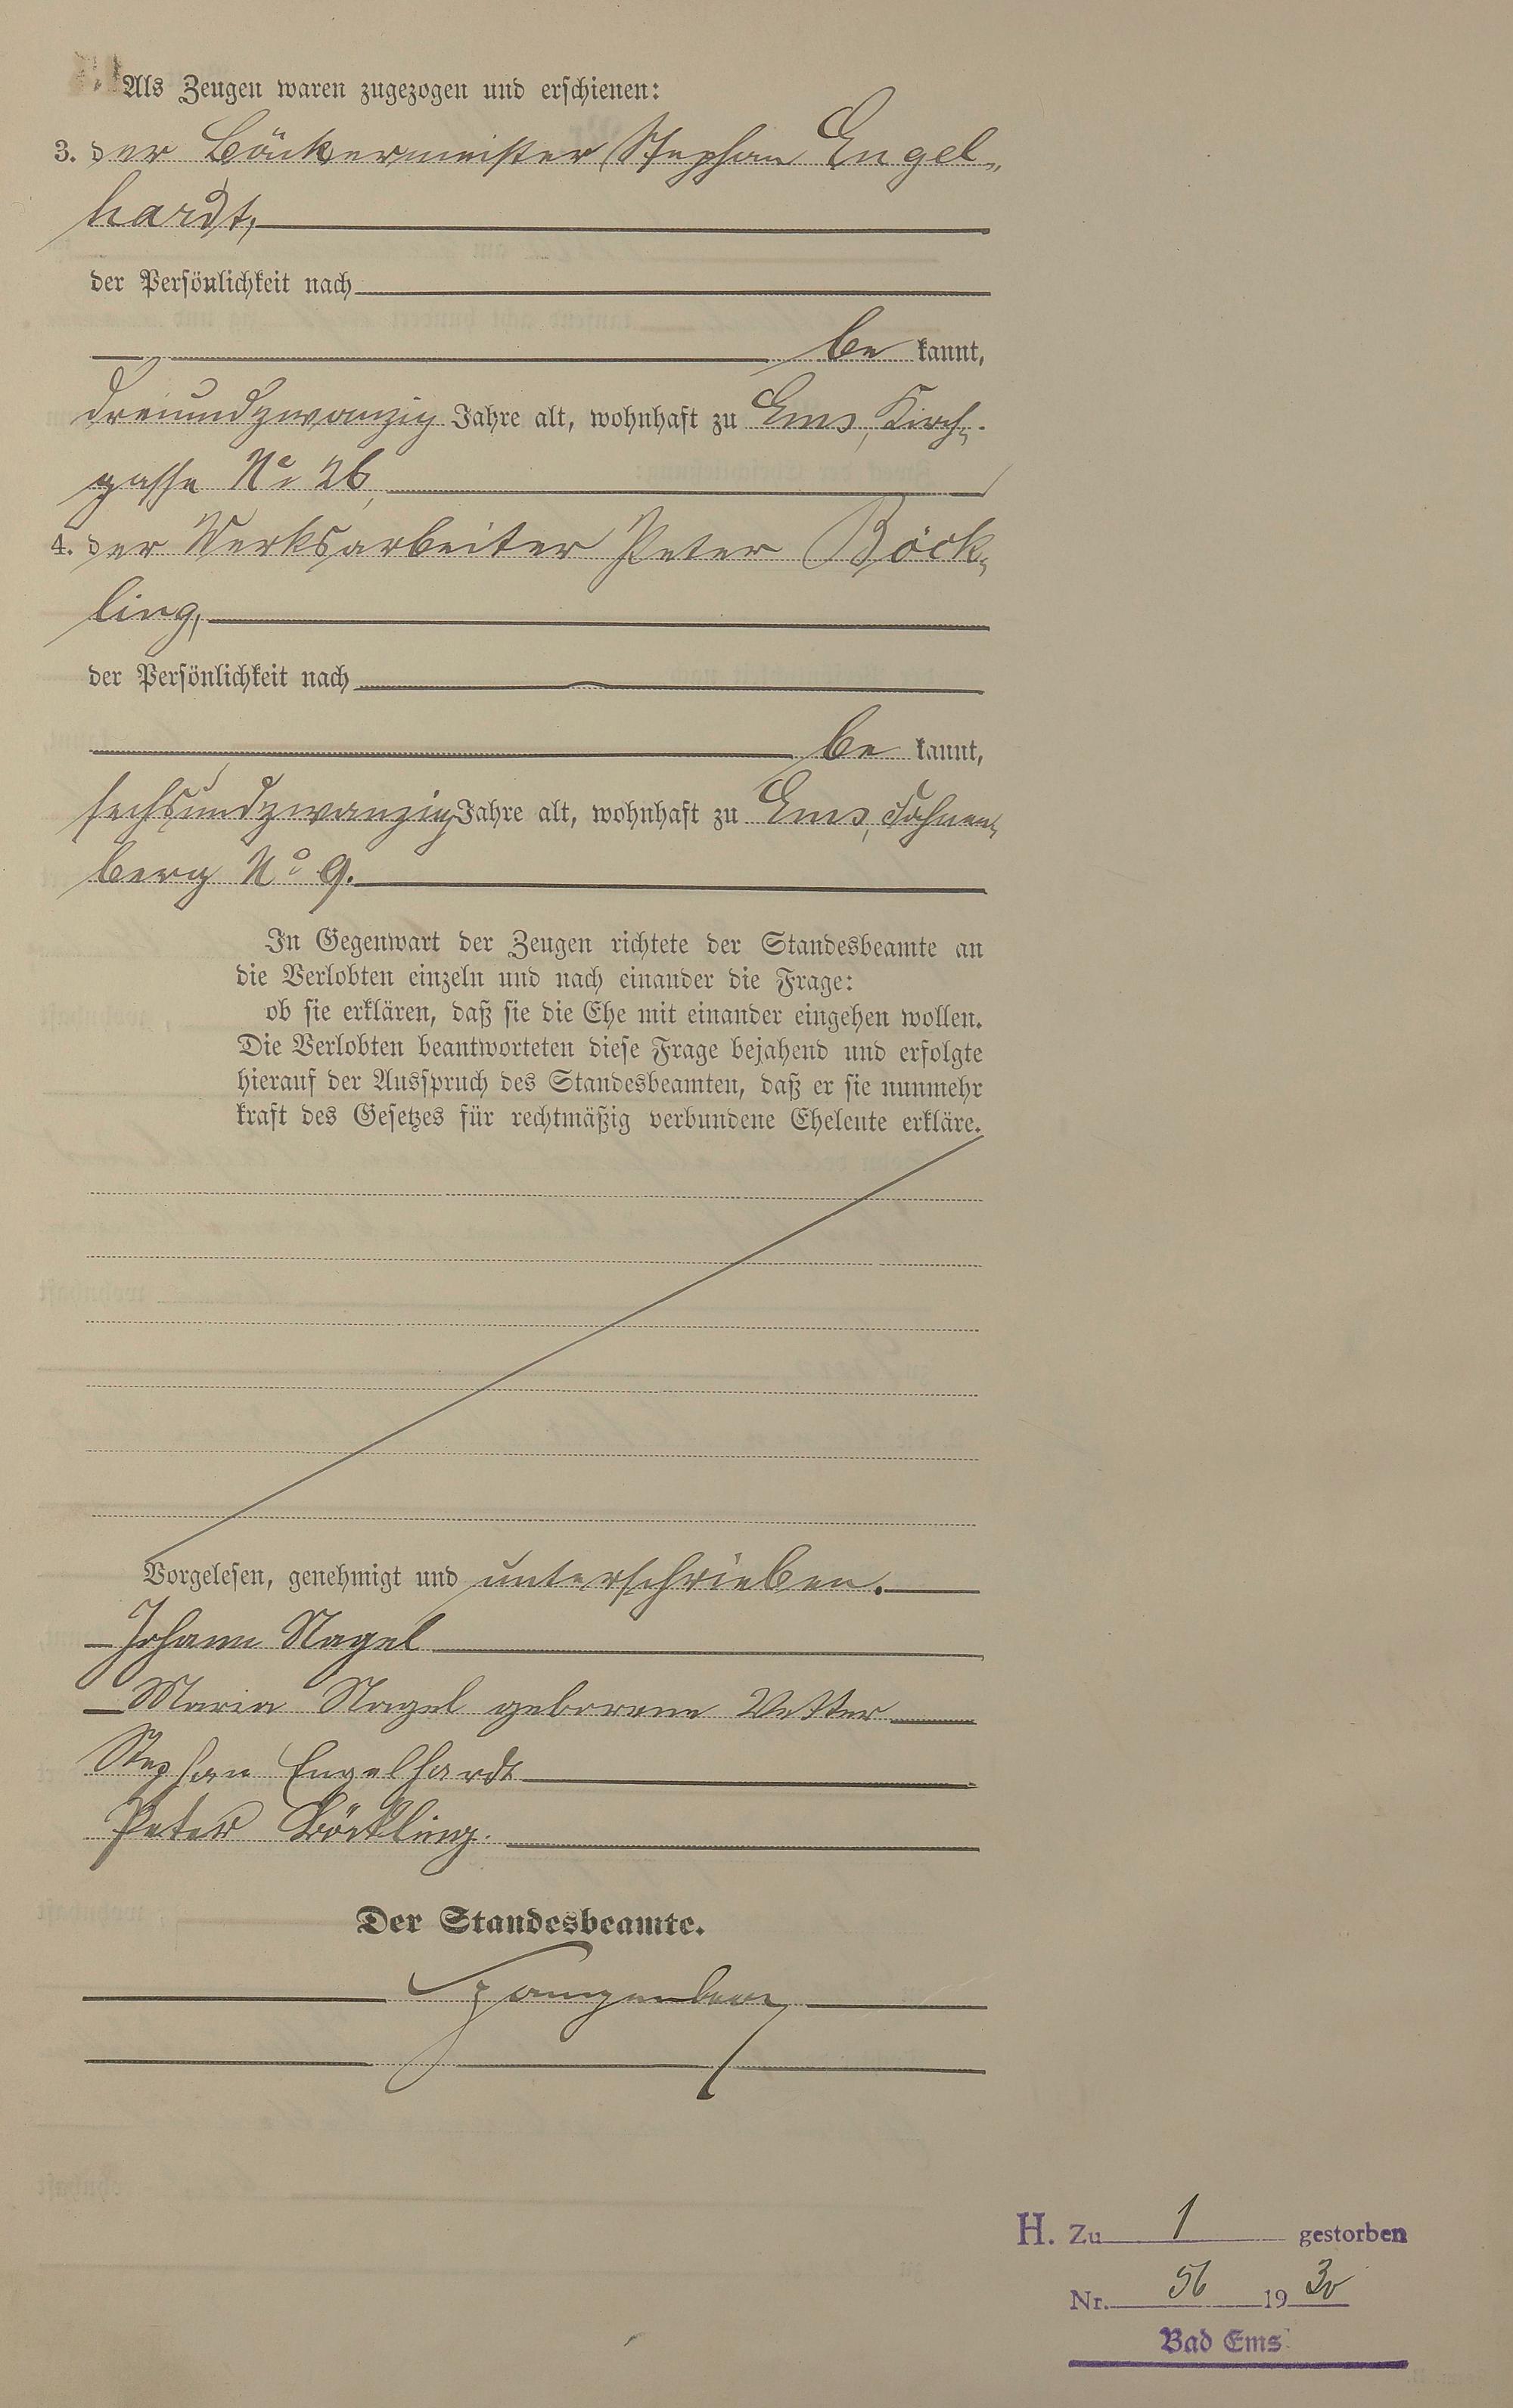 Als Zeugen waren zugezogen und erschienen:
3. der Bäckermeister Stephan Engel„
hardt,
der Persönlichkeit nach
be kannt,
dreiundzwanzig Jahre alt, wohnhaft zu Ems, Kirch„
gasse No 26,
4. der Werksarbeiter Peter Böck„
ling,
der Persönlichkeit nach
be kannt,
sechsundzwanzig Jahre alt, wohnhaft zu Ems,
berg No 9.
In Gegenwart der Zeugen richtete der Standesbeamte an
die Verlobten einzeln und nach einander die Frage:
ob sie erklären, daß sie die Ehe mit einander eingehen wollen.
Die Verlobten beantworteten diese Frage bejahend und erfolgte
hierauf der Ausspruch des Standesbeamten, daß er sie nunmehr
kraft des Gesetzes für rechtmäßig verbundene Eheleute erkläre.
Vorgelesen, genehmigt und unterschrieben.
Johann Nagel
Maria Nagel geborene Vetter
Stephan Engelhardt
Peter Böckling.
Der Standesbeamte.
Spangenberg
H. Zu 1 gestorben
Nr. 56 1930
Bad Ems